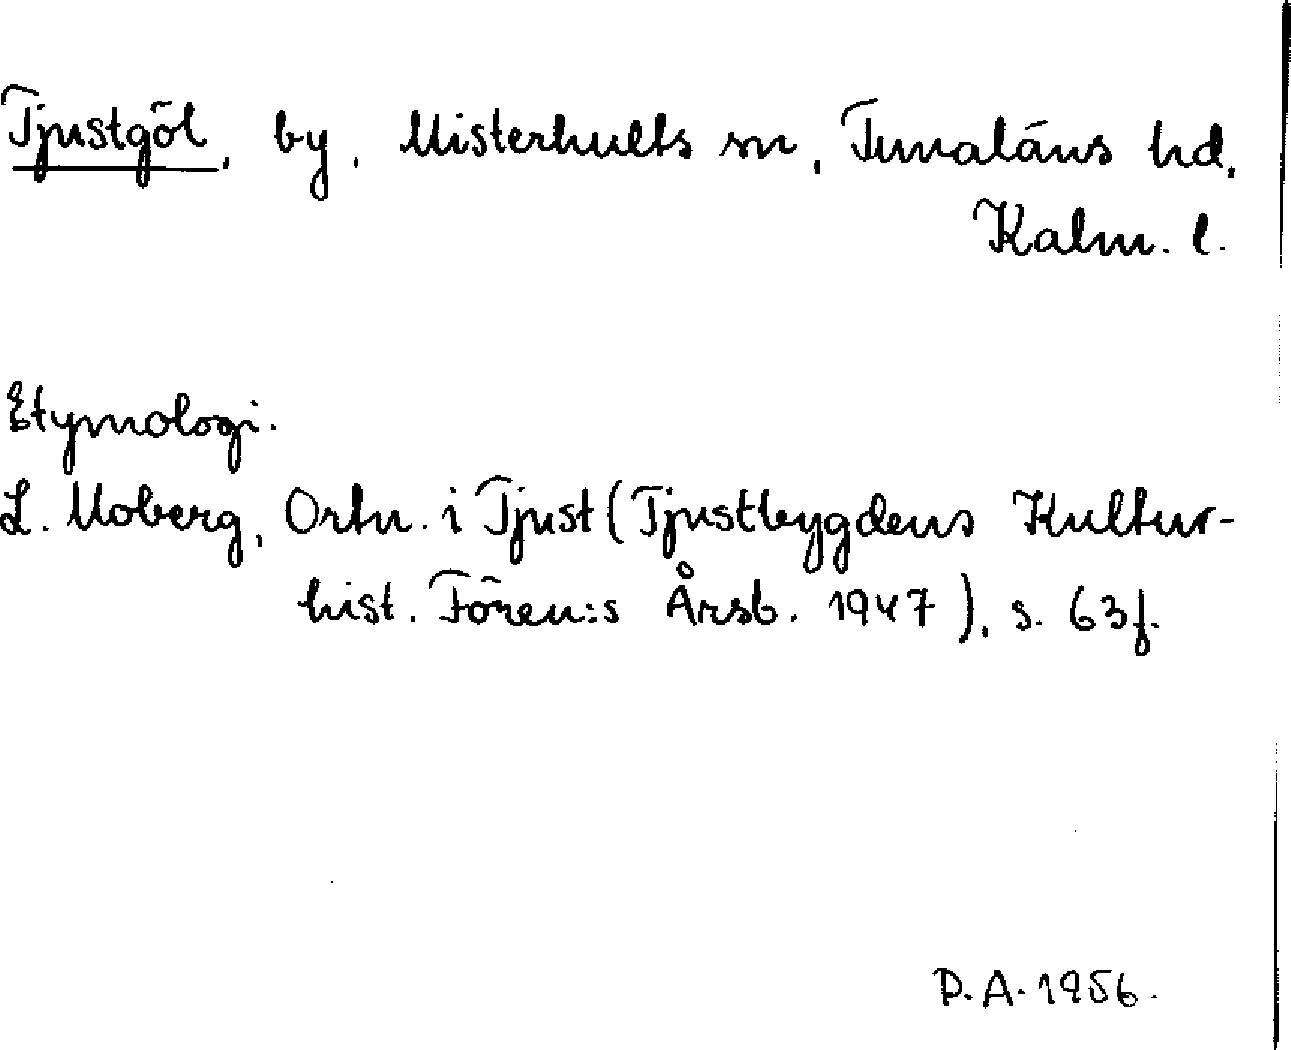 Tjustgöl, by, Misterhults sn, Tunaläns hd,
Kalm. l.
Etymologi.
L. Moberg, Ortn. i Tjust (Tjustbygdens Kultur-
hist. Fören:s Årsb. 1947), s. 63f.
P.A. 1956.